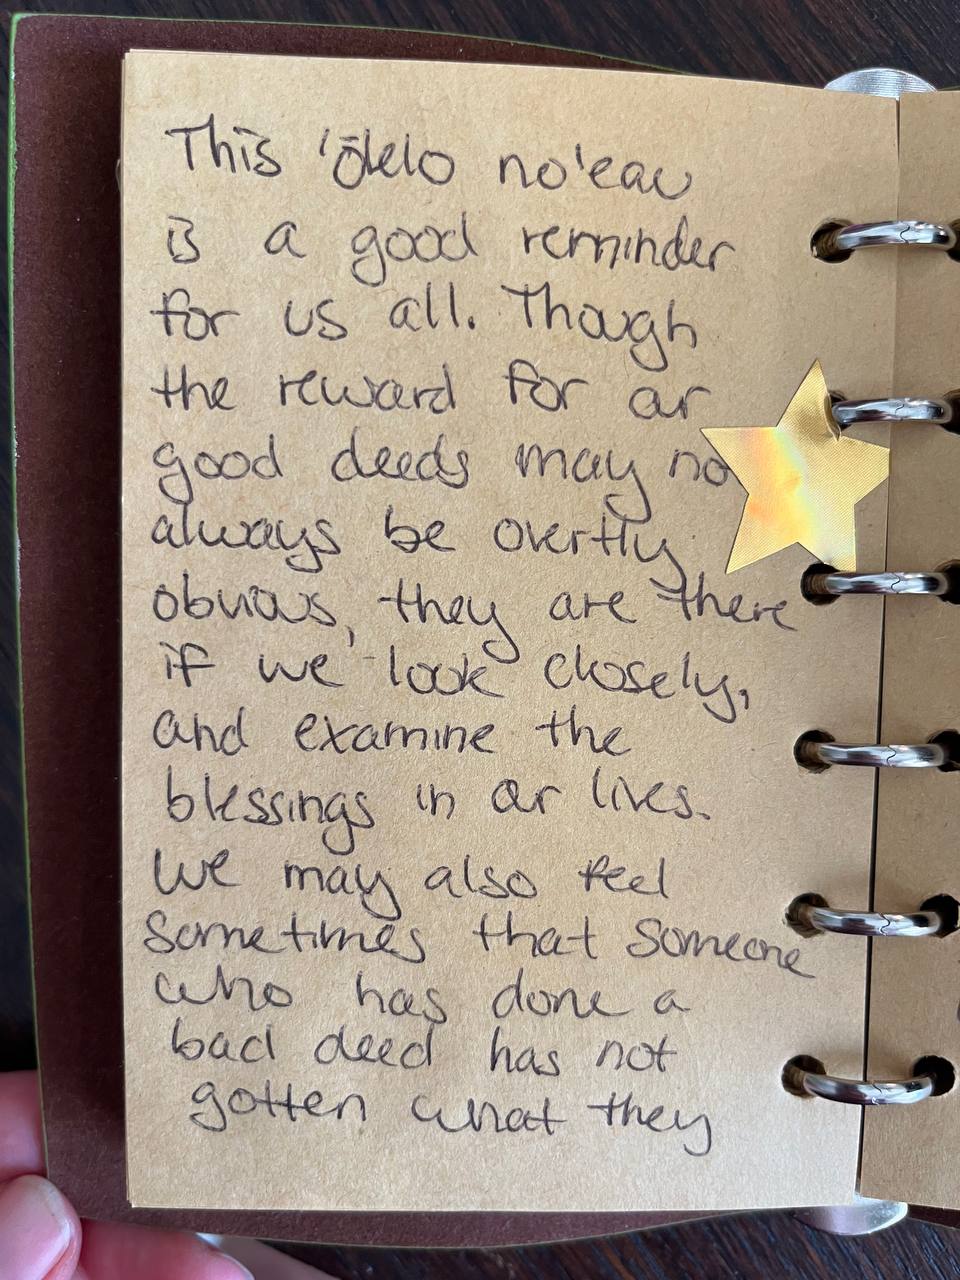 This 'ōlelo no'eau
is a good reminder
for us all. Though
the reward for our
good deeds may no
always be overtly
obvious, they are there
if we look closely,
and examine the
blessings in our lives.
We may also feel
sometimes that someone
who has done a
bad deed has not
gotten what they